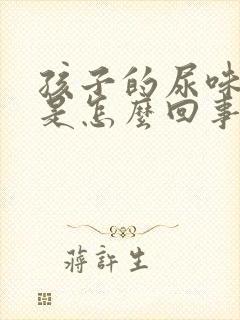 孩子的尿味
是怎麼回事
蔣許生